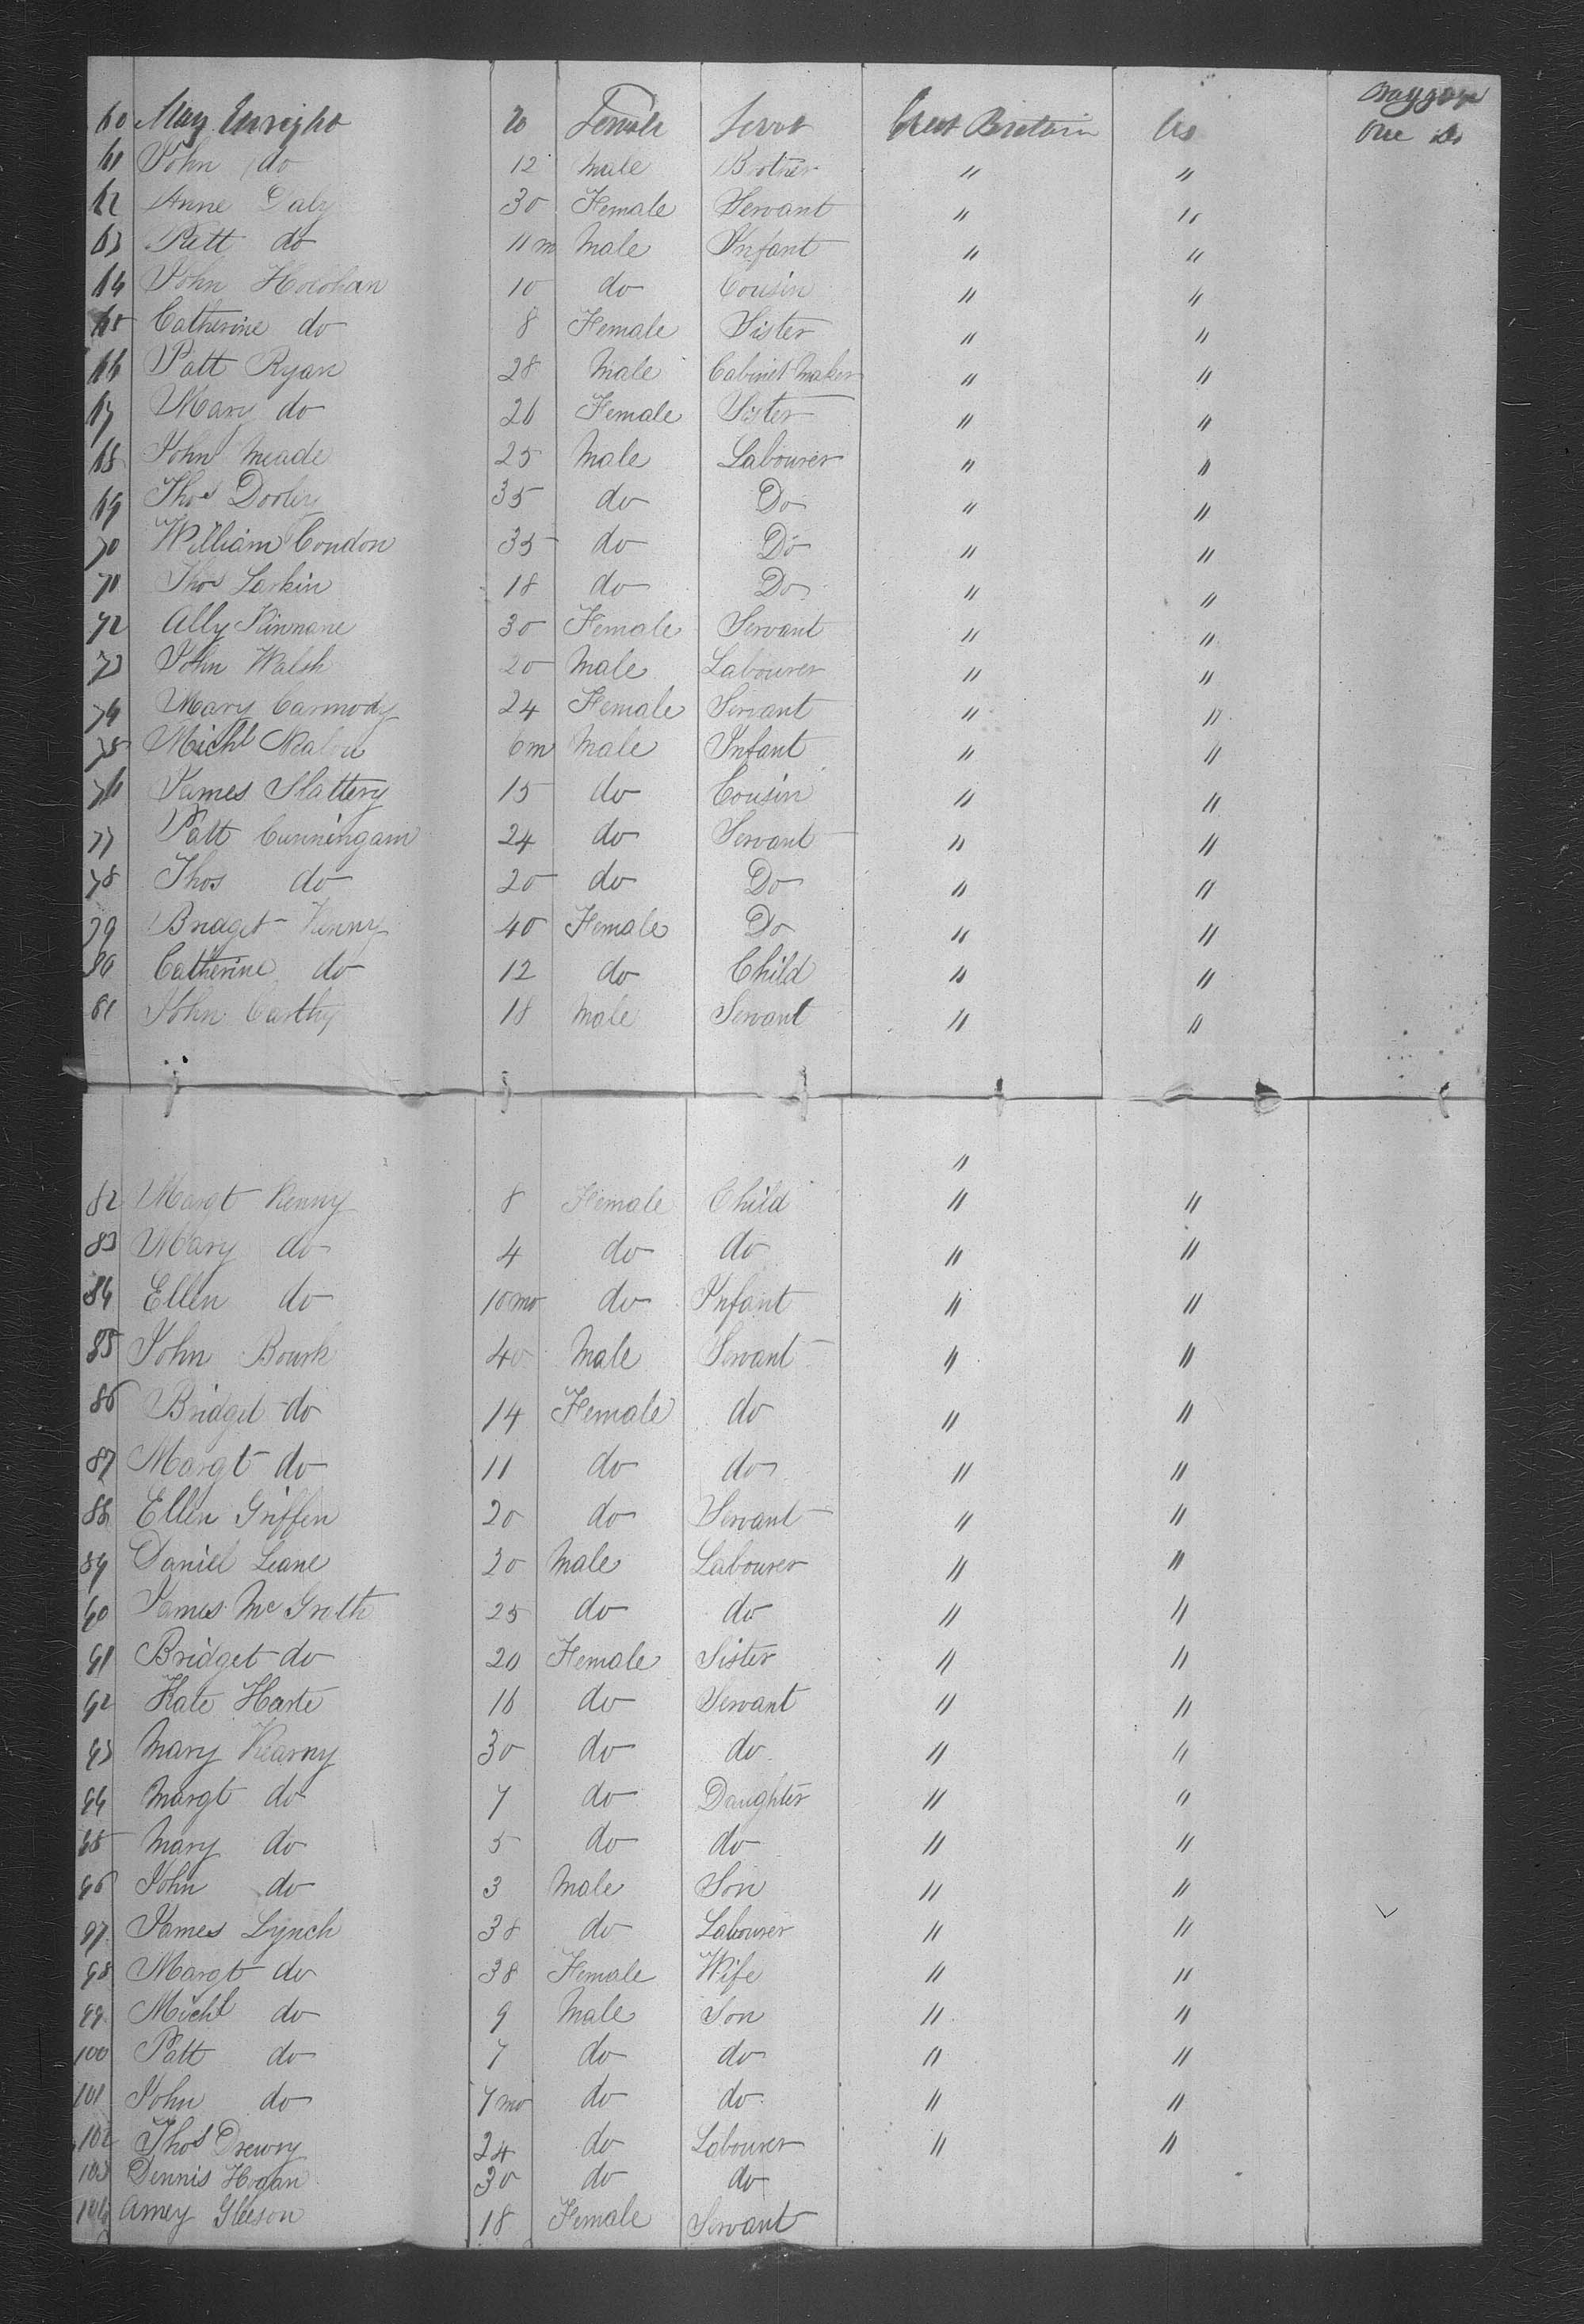 Baggage
60 Mary Enright 20 Female Servt Great Britain US One do
61 John do 12 male Brother " "
62 Anne Daly 30 Female Servant " "
63 Patt do 11 m male Infant " "
64 John Holohan 10 do Cousin " "
65 Catherine do 8 Female Sister " "
66 Patt Ryan 28 male Cabinet maker " "
67 Mary do 26 Female Sister " "
68 John Meade 25 Male Labourer " "
69 Thos Dooley 35 do Do " "
70 William Condon 35 do Do " "
71 Thos Larkin 18 do Do " "
72 Ally Kinnane 30 Female Servant " "
73 John Walsh 20 Male Labourer " "
74 Mary Carmody 24 Female Servant " "
75 Michl Nealon 6m Male Infant " "
76 James Slattery 15 do Cousin " "
77 Patt Cunningam 24 do Servant " "
78 Thos do 20 do Do " "
79 Bridget Kenny 40 Female Do " "
80 Catherine do 12 do Child " "
81 John Carthy 18 Male Servant " "
"
82 Margt Kenny 8 Female Child " "
83 Mary do 4 do do " "
84 Ellen do 10 mo do Infant " "
85 John Bourk 40 Male Servant " "
86 Bridget do 14 Female do " "
87 Margt do 11 do do " "
88 Ellen Griffen 20 do Servant " "
89 Daniel Leane 30 Male Labourer " "
90 James Mc Grath 25 do do " "
91 Bridget do 20 Female Sister " "
92 Kate Harte 16 do Servant " "
93 Mary Kearny 30 do do " "
94 Margt do 7 do Daughter " "
95 Mary do 5 do do " "
96 John do 3 Male Son " "
97 James Lynch 38 do Labourer " "
98 Margt do 38 Female Wife " "
99 Michl do 9 Male Son " "
100 Patt do 7 do do " "
101 John do 7 mo do do " "
102 Thos Drewry 24 do Labourer " "
103 Dennis Hogan 30 do do
104 Amey Gleeson 18 Female Servant